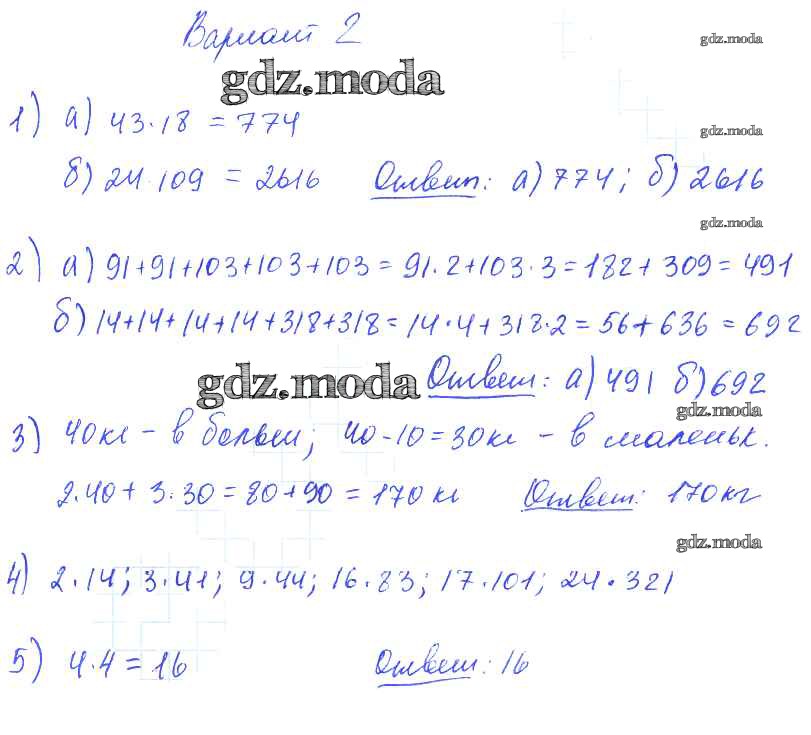 Вариант 2
gdz.moda
gdz.moda
1) а) 43·18 = 774
gdz.moda
б) 24·109 = 2616 Ответ: а) 774; б) 2616
gdz.moda
2) а) 91+91+103+103+103 = 91·2+103·3 = 182+309 = 491
б) 14+14+14+14+318+318 = 14·4+318·2 = 56+636 = 692
gdz.moda Ответ: а) 491 б) 692
gdz.moda
3) 40кг - в больш; 40-10=30кг - в маленьк.
2·40+3·30=80+90=170кг Ответ: 170кг
gdz.moda
4) 2·14; 3·41; 9·44; 16·83; 17·101; 24·321
5) 4·4=16 Ответ: 16